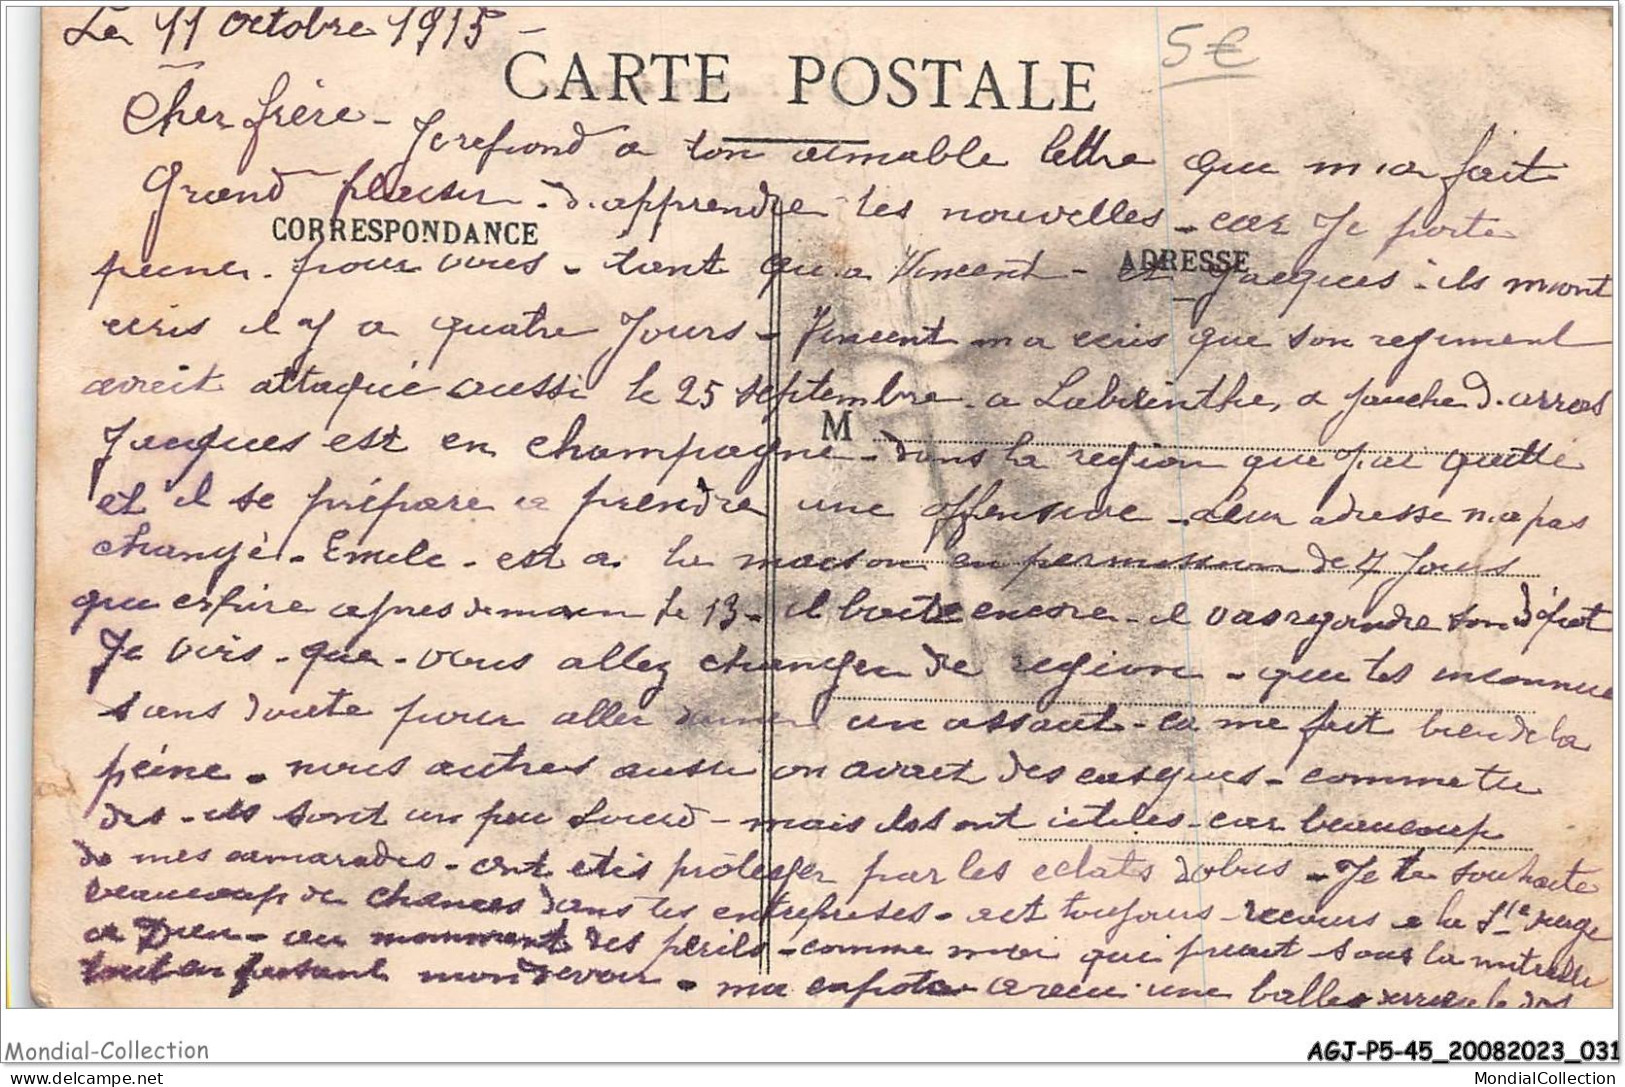 Le 11 octobre 1915 -
5€
CARTE POSTALE
Cher frère - Je refond a ton aimable lettre que m'a fait
Grand plaisir - d'apprendre tes nouvelles - car Je porte
CORRESPONDANCE
ADRESSE
peine - pour vous - tant qu'a Vincent - et Jacques - ils m'ont
ecris il y a quatre Jours - Vincent m'a ecris que son regiment
avait attaqué aussi le 25 septembre - a Labirinthe, a gauche d'arras
M
Jacques est en Champagne - dans la region que J'ai quitté
et il se prépare a prendre une offensive - Leur adresse n'a pas
changé - Emile - est a la maison en permission de 7 Jours
que expire apres demain le 13 - il boite encore - il vas rejoindre son dépot
Je vois - que - vous allez changer de region - que tes inconnue
sans doute pour aller donner un assaut - ca me fait bien de la
peine - nous autres aussi on avait des casques - comme tu
dis - ils sont un peu Lourd - mais ils sont utiles - car beaucoup
de mes camarades - ont etes protéger par les eclats d'obus - Je te souhaite
beaucoup de chances dans tes entreprises - aet toujours recours a la Ste vierge
a Dieu - au moment des périls - comme moi qui priait sous la mitraille
tout en faisant mon devoir - ma capote a recu une balle derriere le dos
Mondial-Collection
AGJ-P5-45_20082023_031
delcampe.net
MondialCollection